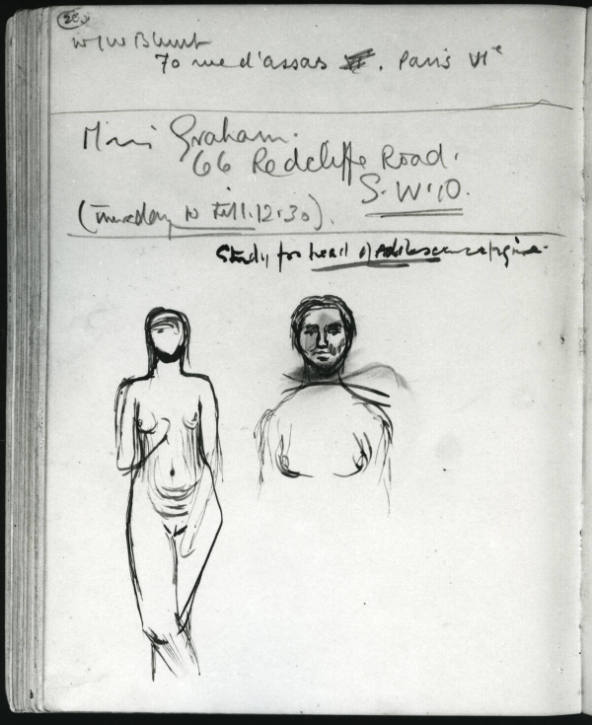 280
W/W Blunt
70 rue d'assas VI. Paris VIe
Miss Graham.
66 Redcliffe Road.
S.W.10.
(Thursday 10 till 12.30).
Study for head of Adolescence figure.